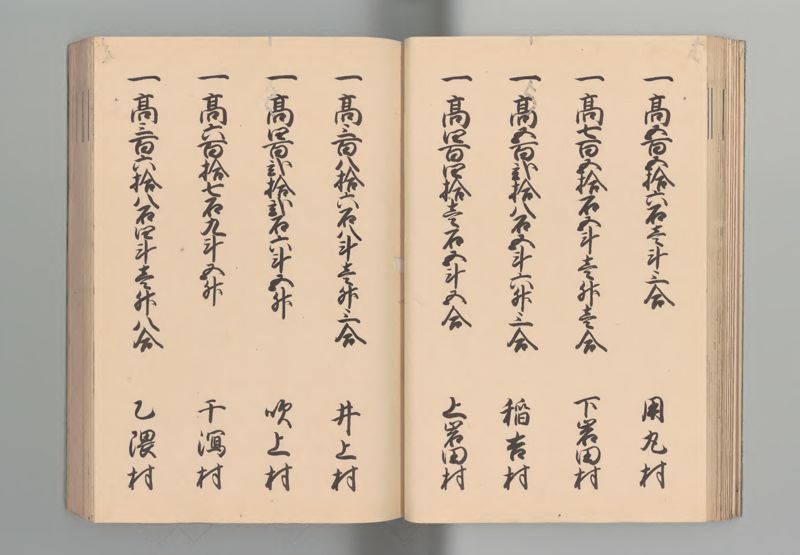 一高五百五拾六石壱斗三合 用丸村
一高七百五拾石五斗壱升壱合 下岩田村
一高五百弐拾八石五斗六升三合 稲吉村
一高四百四拾壱石五斗五合 上岩田村
一高三百八拾六石八斗壱升三合 井上村
一高四百弐拾弐石六斗五升 吹上村
一高六百拾七石九斗五升 干潟村
一高三百六拾八石四斗壱升八合 乙隈村